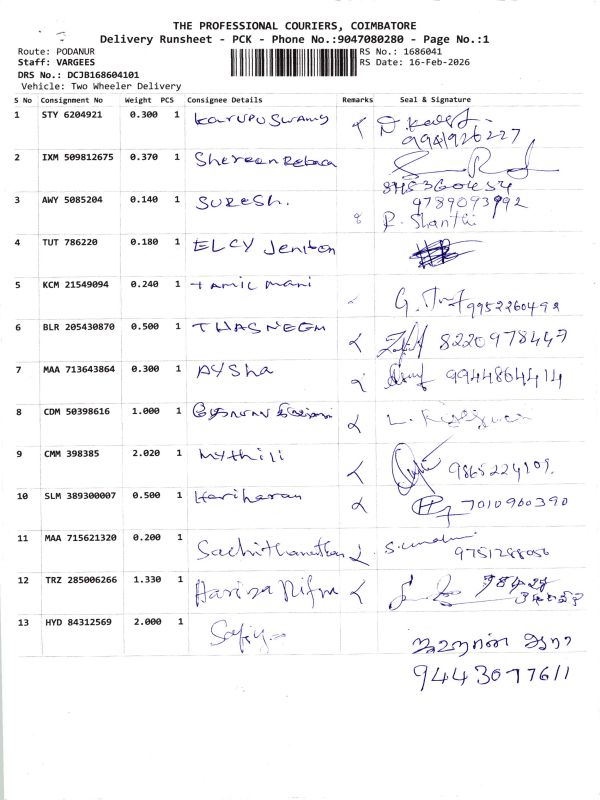 THE PROFESSIONAL COURIERS, COIMBATORE
Delivery Runsheet - PCK - Phone No.:9047080280 - Page No.:1
Route: PODANUR RS No.: 1686041
Staff: VARGEES RS Date: 16-Feb-2026
DRS No.: DCJB168604101
Vehicle: Two Wheeler Delivery
S No Consignment No Weight PCS Consignee Details Remarks Seal & Signature
1 STY 6204921 0.300 1 Karupuswamy
9941926227
2 IXM 509812675 0.370 1 Shereen Rebeca
3 AWY 5085204 0.140 1 SURESH. 9789093992
R. Shanthi
4 TUT 786220 0.180 1 ELCY Jeniton
5 KCM 21549094 0.240 1 TAMIL mani 9952260492
6 BLR 205430870 0.500 1 THASNEEM 8220978447
7 MAA 713643864 0.300 1 AYSha 9944864414
8 CDM 50398616 1.000 1
9 CMM 398385 2.020 1 Mythili 9865224109.
10 SLM 389300007 0.500 1 Hariharan 7010960390
11 MAA 715621320 0.200 1 9751288056
12 TRZ 285006266 1.330 1
13 HYD 84312569 2.000 1
9443077611